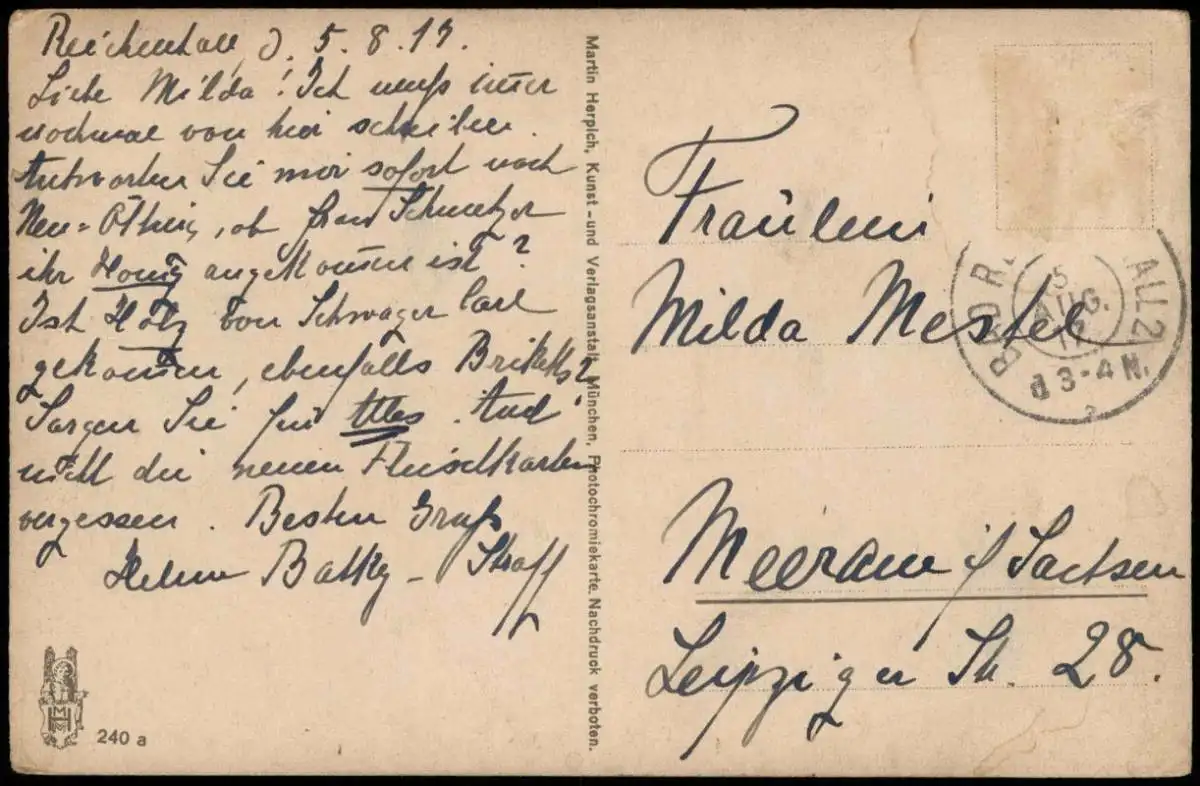 Reichenhall, d. 5. 8. 17.
Liebe Milda! Ich muß immer
nochmal von hier schreiben.
Antworten Sie mir sofort nach
Neu-Ötting, ob Frau Schmetzer
ihr Honig angekommen ist?
Ist Holz von Schwager Carl
gekommen, ebenfalls Briketts?
Sorgen Sie für Alles. Auch
nicht die neuen Fleischkarten
vergessen. Besten Gruß
Martin Herpich, Kunst- und Verlagsanstalt, München. Photochromiekarte. Nachdruck verboten.
240 a
Fräulein
Milda Mestel
Meerane i/Sachsen
Leipziger Str. 28.
5
AUG.
17
3-4 N.